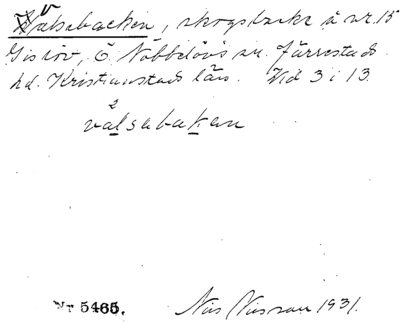 Valsabacken, skogsbacke å nr. 15
Gislöv, Ö. Nöbbelövs sn. Järrestads
hd. Kristianstads län. Kd 3 i 13.
2
valsabaken
Nr 5465. Nils 1931.